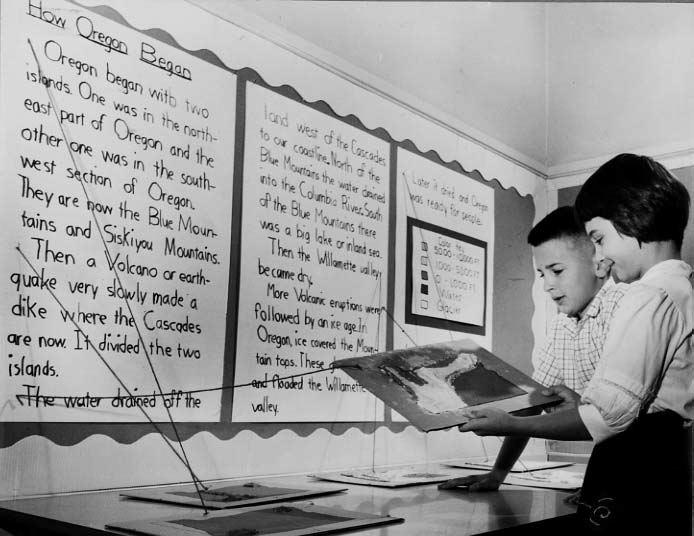 How Oregon Began
Oregon began with two
islands. One was in the north-
east part of Oregon and the
other one was in the south-
west section of Oregon.
They are now the Blue Moun-
tains and Siskiyou Mountains.
Then a Volcano or earth-
quake very slowly made a
dike where the Cascades
are now. It divided the two
islands.
The water drained off the
land west of the Cascades
to our coastline. North of the
Blue Mountains the water drained
into the Columbia River. South
of the Blue Mountains there
was a big lake or inland sea.
Then the Willamette valley
became dry.
More Volcanic eruptions were
followed by an ice age. In
Oregon, ice covered the Moun-
tain tops. These
and flooded the Willamette
valley.
Later it dried and Oregon
was ready for people.
Color Key
5000-10000 FT
1000-5000 FT
0-1000 FT
Water
Glacier